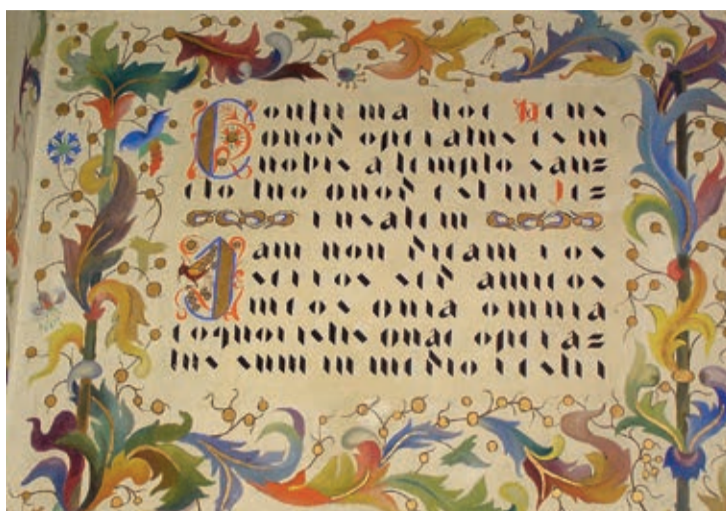 Confirma hoc Deus
quod operatus es in
nobis a templo san=
cto tuo quod est in Je=
rusalem
Jam non dicam vos
servos sed amicos
meos quia omnia
cognovistis quae opera=
tus sum in medio vestri